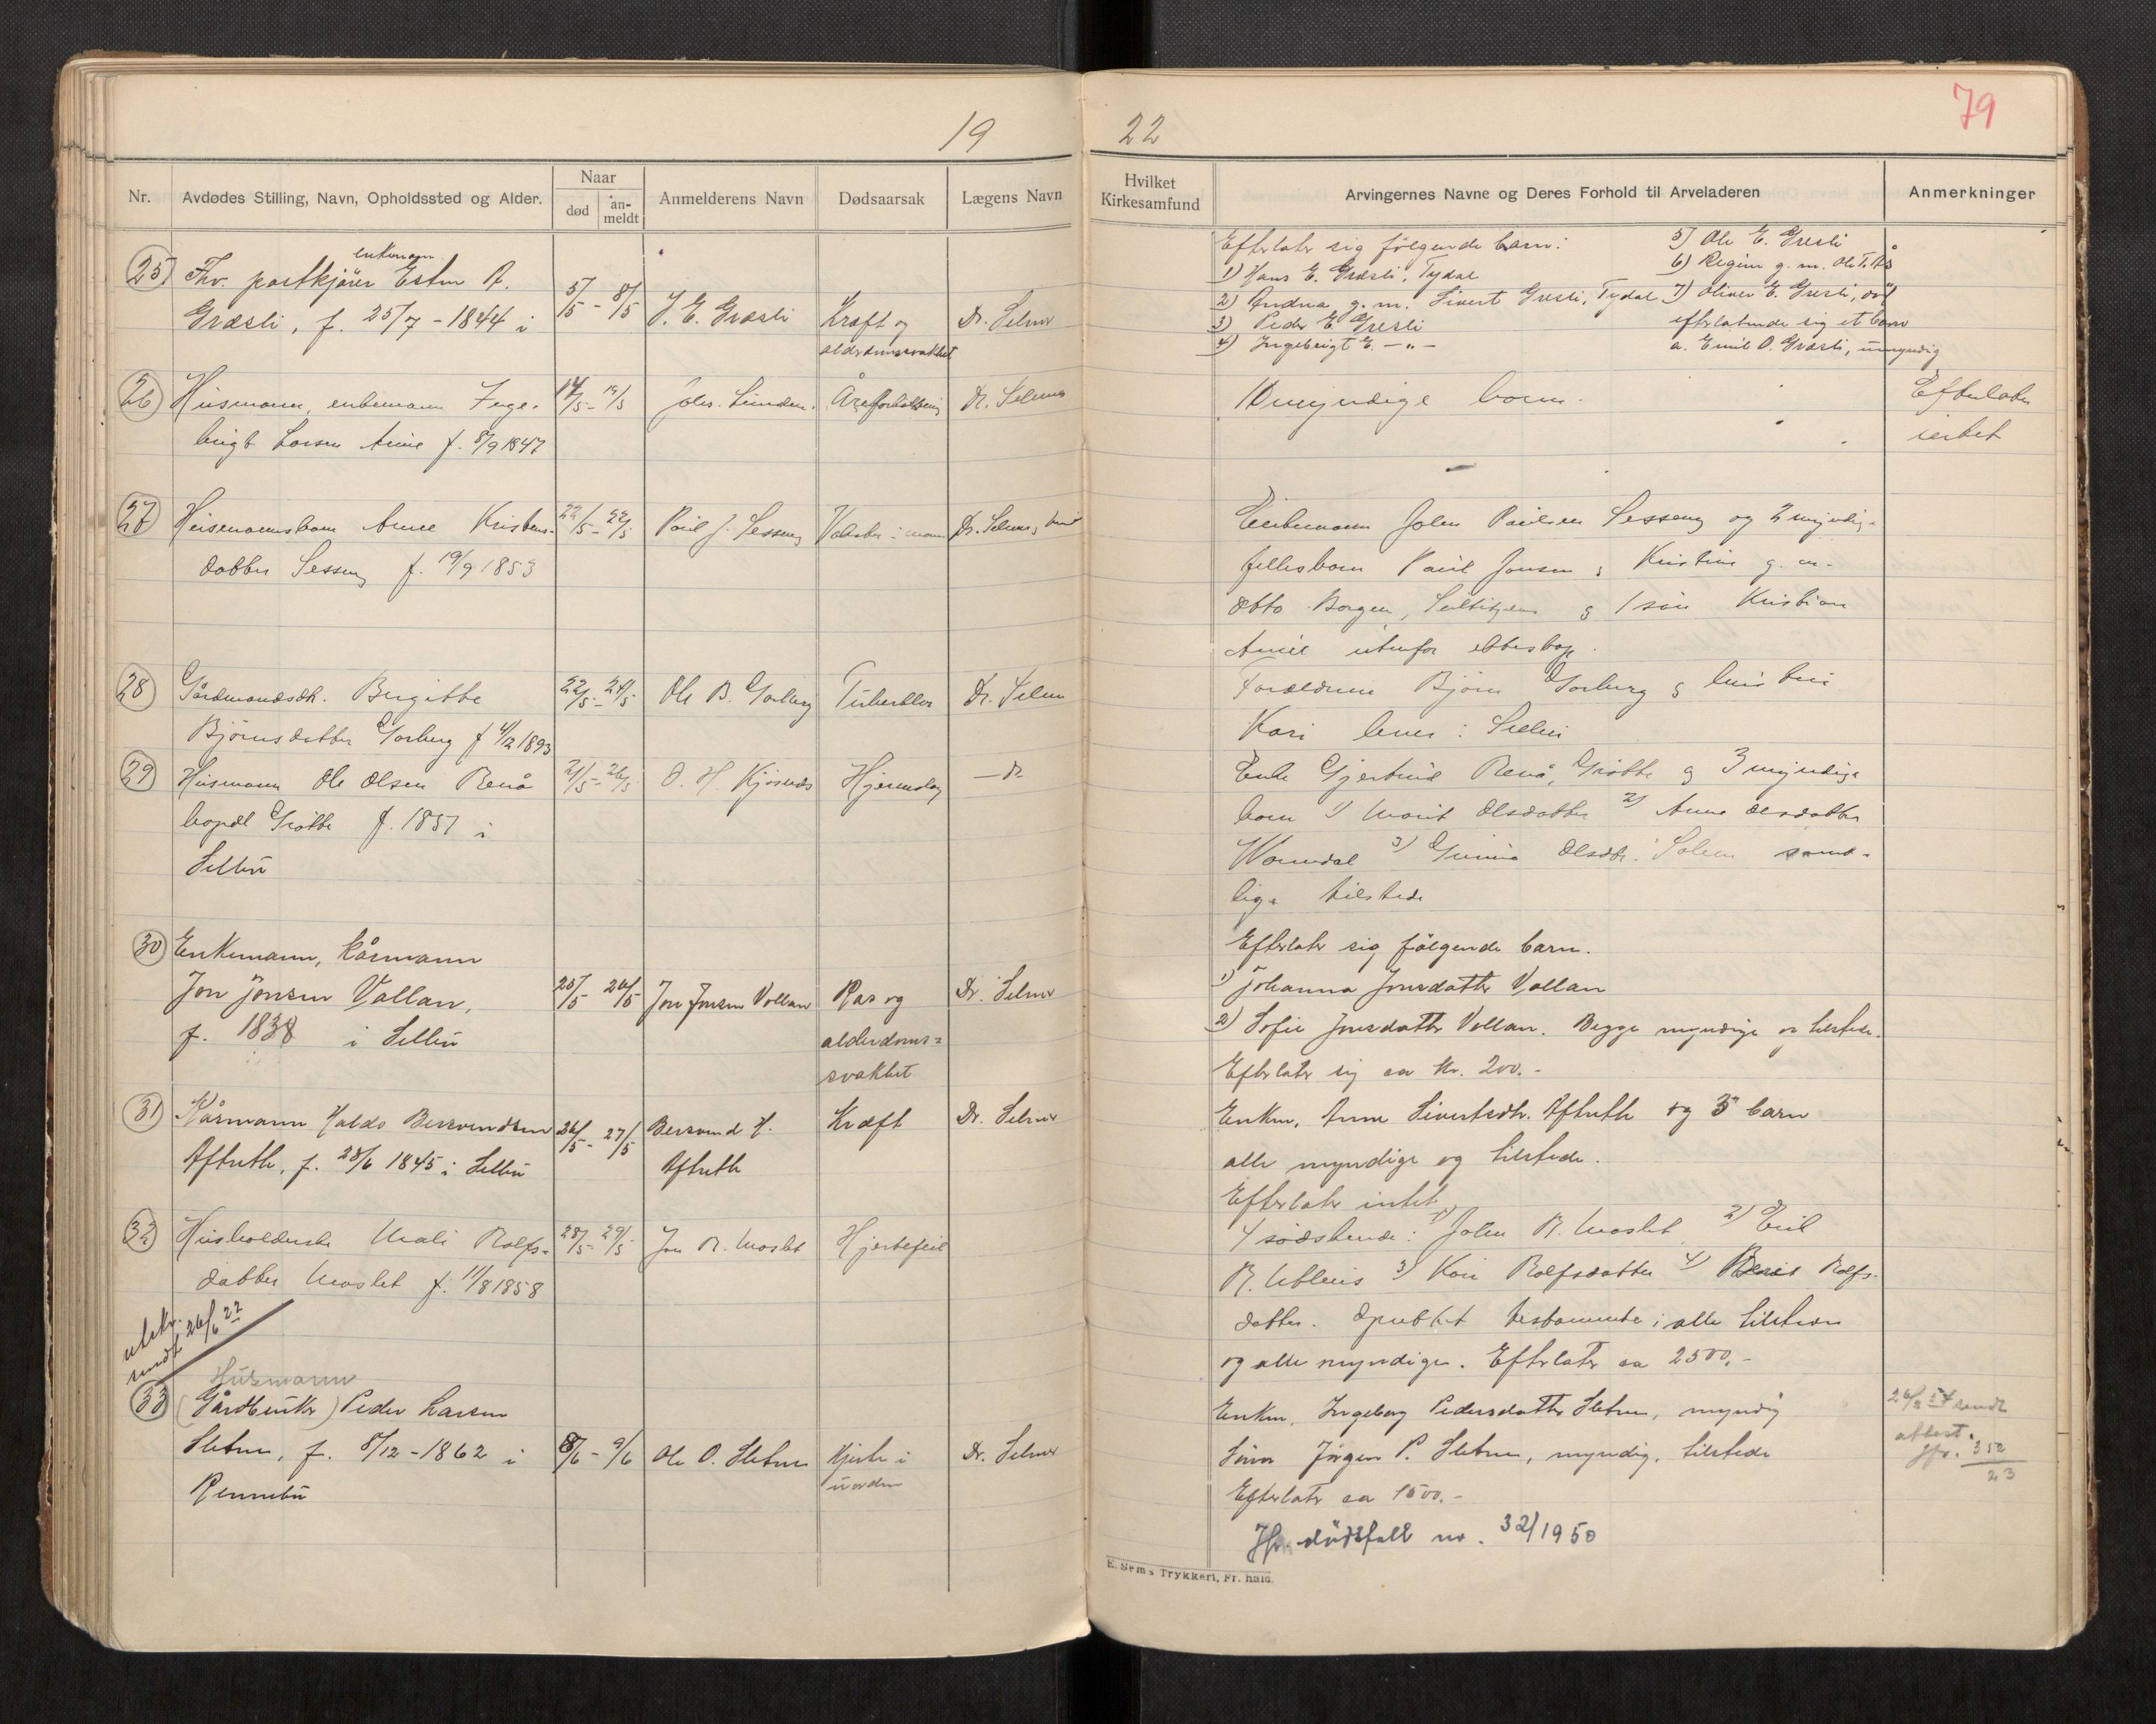 19
22
79
Nr.
Avdødes Stilling, Navn, Opholdssted og Alder.
Naar
død
an-
meldt
Anmelderens Navn
Dødsaarsak
Lægens Navn
Hvilket
Kirkesamfund
Arvingernes Navne og Deres Forhold til Arveladeren
Anmerkninger
25)
enkemann
Fhv. postkjører Esten A.
Græsli, f. 25/7 - 1844 i
5/5 - 8/5
J. E. Græsli
Kræft og
alderdomssvakhet
Dr. Selmer
Efterlater sig følgende barn:
1) Hans E. Græsli, Tydal
2) Andrea g. m. Sivert Græsli, Tydal
3) Peder E. Græsli
4) Ingebrigt E. -"-
5) Ole E. Græsli
6) Regine g. m. Ole T. Ås
7) Oliver E. Græsli, død
efterlatende sig et barn
a. Emil O. Græsli, umyndig
26
Husmann, enkemann Inge-
brigt Larsen Aune f. 8/9 1847
14/5 - 19/5
Johs.
Åreforkalkning
Dr. Selmer
Umyndige barn.
Efterlater
intet
27
Husmannskone Anne Kristens-
datter Sesseng f. 19/9 1853
22/5 - 22/5
Paul J. Sesseng
Dr. Selmer
Enkemann John Paulsen Sesseng og 2 myndige
fellesbarn Paul Jonsen & Kristine g. m.
Otto Borgen, & 1 søn Kristian
Aune utenfor ekteskap.
28
Gårdmandsdtr. Bergitte
Bjørnsdatter Garberg f 4/12 1893
22/5 - 24/5
Ole B. Garberg
Tuberklos
Dr. Selmer
Forældrene Bjørn Garberg &
Kari lever i Selbu
29
Husmann Ole Olsen Renå
bopæl Grøtte f. 1857 i
Selbu
21/5 - 26/5
O. H. Kjøsnes
Hjerneslag
-do
Enke Gjertrud Renå, Grøtte & 3 myndige
barn 1) Marit Olsdatter 2) Anne Olsdatter
3) Olsdtr. Solem samt-
lige tilstede
30
Enkemann, kårmann
Jon Jonsen Vollan,
f. 1838 i Selbu
25/5 26/5
Jon Jonsen Vollan
Ras og
alderdoms=
svakhet
Dr. Selmer
Efterlater sig følgende barn.
1) Johanna Jonsdatter Vollan
2) Sofie Jonsdatter Vollan. Begge myndige og tilstede.
Efterlater sig ca kr. 200.-
31
Kårmann Haldo Bersvendsen
Aftreth, f. 28/6 1845 i Selbu
26/5 - 27/5
Bersvend H.
Aftreth
Kræft
Dr. Selmer
Enken, Anne Sivertsdtr. Aftreth og 3 barn
alle myndige og tilstede.
Efterlater intet
32
Husholderske Mali Rolfs-
datter Moslet f. 11/8 1858
28/5 - 29/5
Jon R. Moslet
Hjertefeil
4 sødskende: 1) John R. Moslet 2)
R. 3) Kari Rolfsdatter 4) Berit Rolfs-
datter. Oprettet testamente i alle tilstede
og alle myndige. Efterlater ca 2500.-
utskr.
sendt 26/6 22
33
Husmann
(Gårdbruker) Peder Larsen
Sletner, f. 8/12 - 1862 i
Rennebu
8/6 - 9/6
Ole O. Sletner
Hjerte i
uorden
Dr. Selmer
Enken, Ingeborg Pedersdatter Sletner, myndig
Sønn Jørgen P. Sletner, myndig, tilstede
Efterlater ca 1500.-
Jfr. dødsfall nr. 32/1950
26/2 54 sendt
attest.
Jfr. 352
23
E. Sem's Trykkeri, Fr.hald.